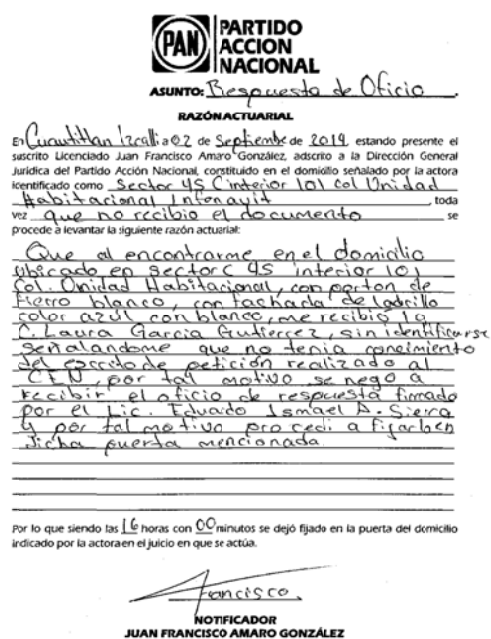 PAN
PARTIDO
ACCION
NACIONAL
ASUNTO: Respuesta de Oficio.
RAZÓN ACTUARIAL
En Cuautitlan Izcalli a 02 de Septiembre de 2019 estando presente el
suscrito Licenciado Juan Francisco Amaro González, adscrito a la Dirección General
Jurídica del Partido Acción Nacional, constituido en el domicilio señalado por la actora
identificado como Sector 45 C interior 101 col Unidad
Habitacional Infonavit, toda
vez que no recibio el documento se
procede a levantar la siguiente razón actuarial:
Que al encontrarme en el domicilio
ubicado en sector C 45 interior 101
Col. Unidad Habitacional, con porton de
fierro blanco, con fachada de ladrillo
color azul con blanco, me recibió la
C. Laura Garcia Gutierrez, sin identificarse
señalandome que no tenia conocimiento
del escrito de petición realizado al
CEN, por tal motivo se negó a
recibir el oficio de respuesta firmado
por el Lic. Eduardo Ismael A. Siera
y por tal motivo procedi a fijarlo en
dicha puerta mencionada.
Por lo que siendo las 16 horas con 00 minutos se dejó fijado en la puerta del domicilio
indicado por la actora en el juicio en que se actúa.
Francisco.
NOTIFICADOR
JUAN FRANCISCO AMARO GONZÁLEZ